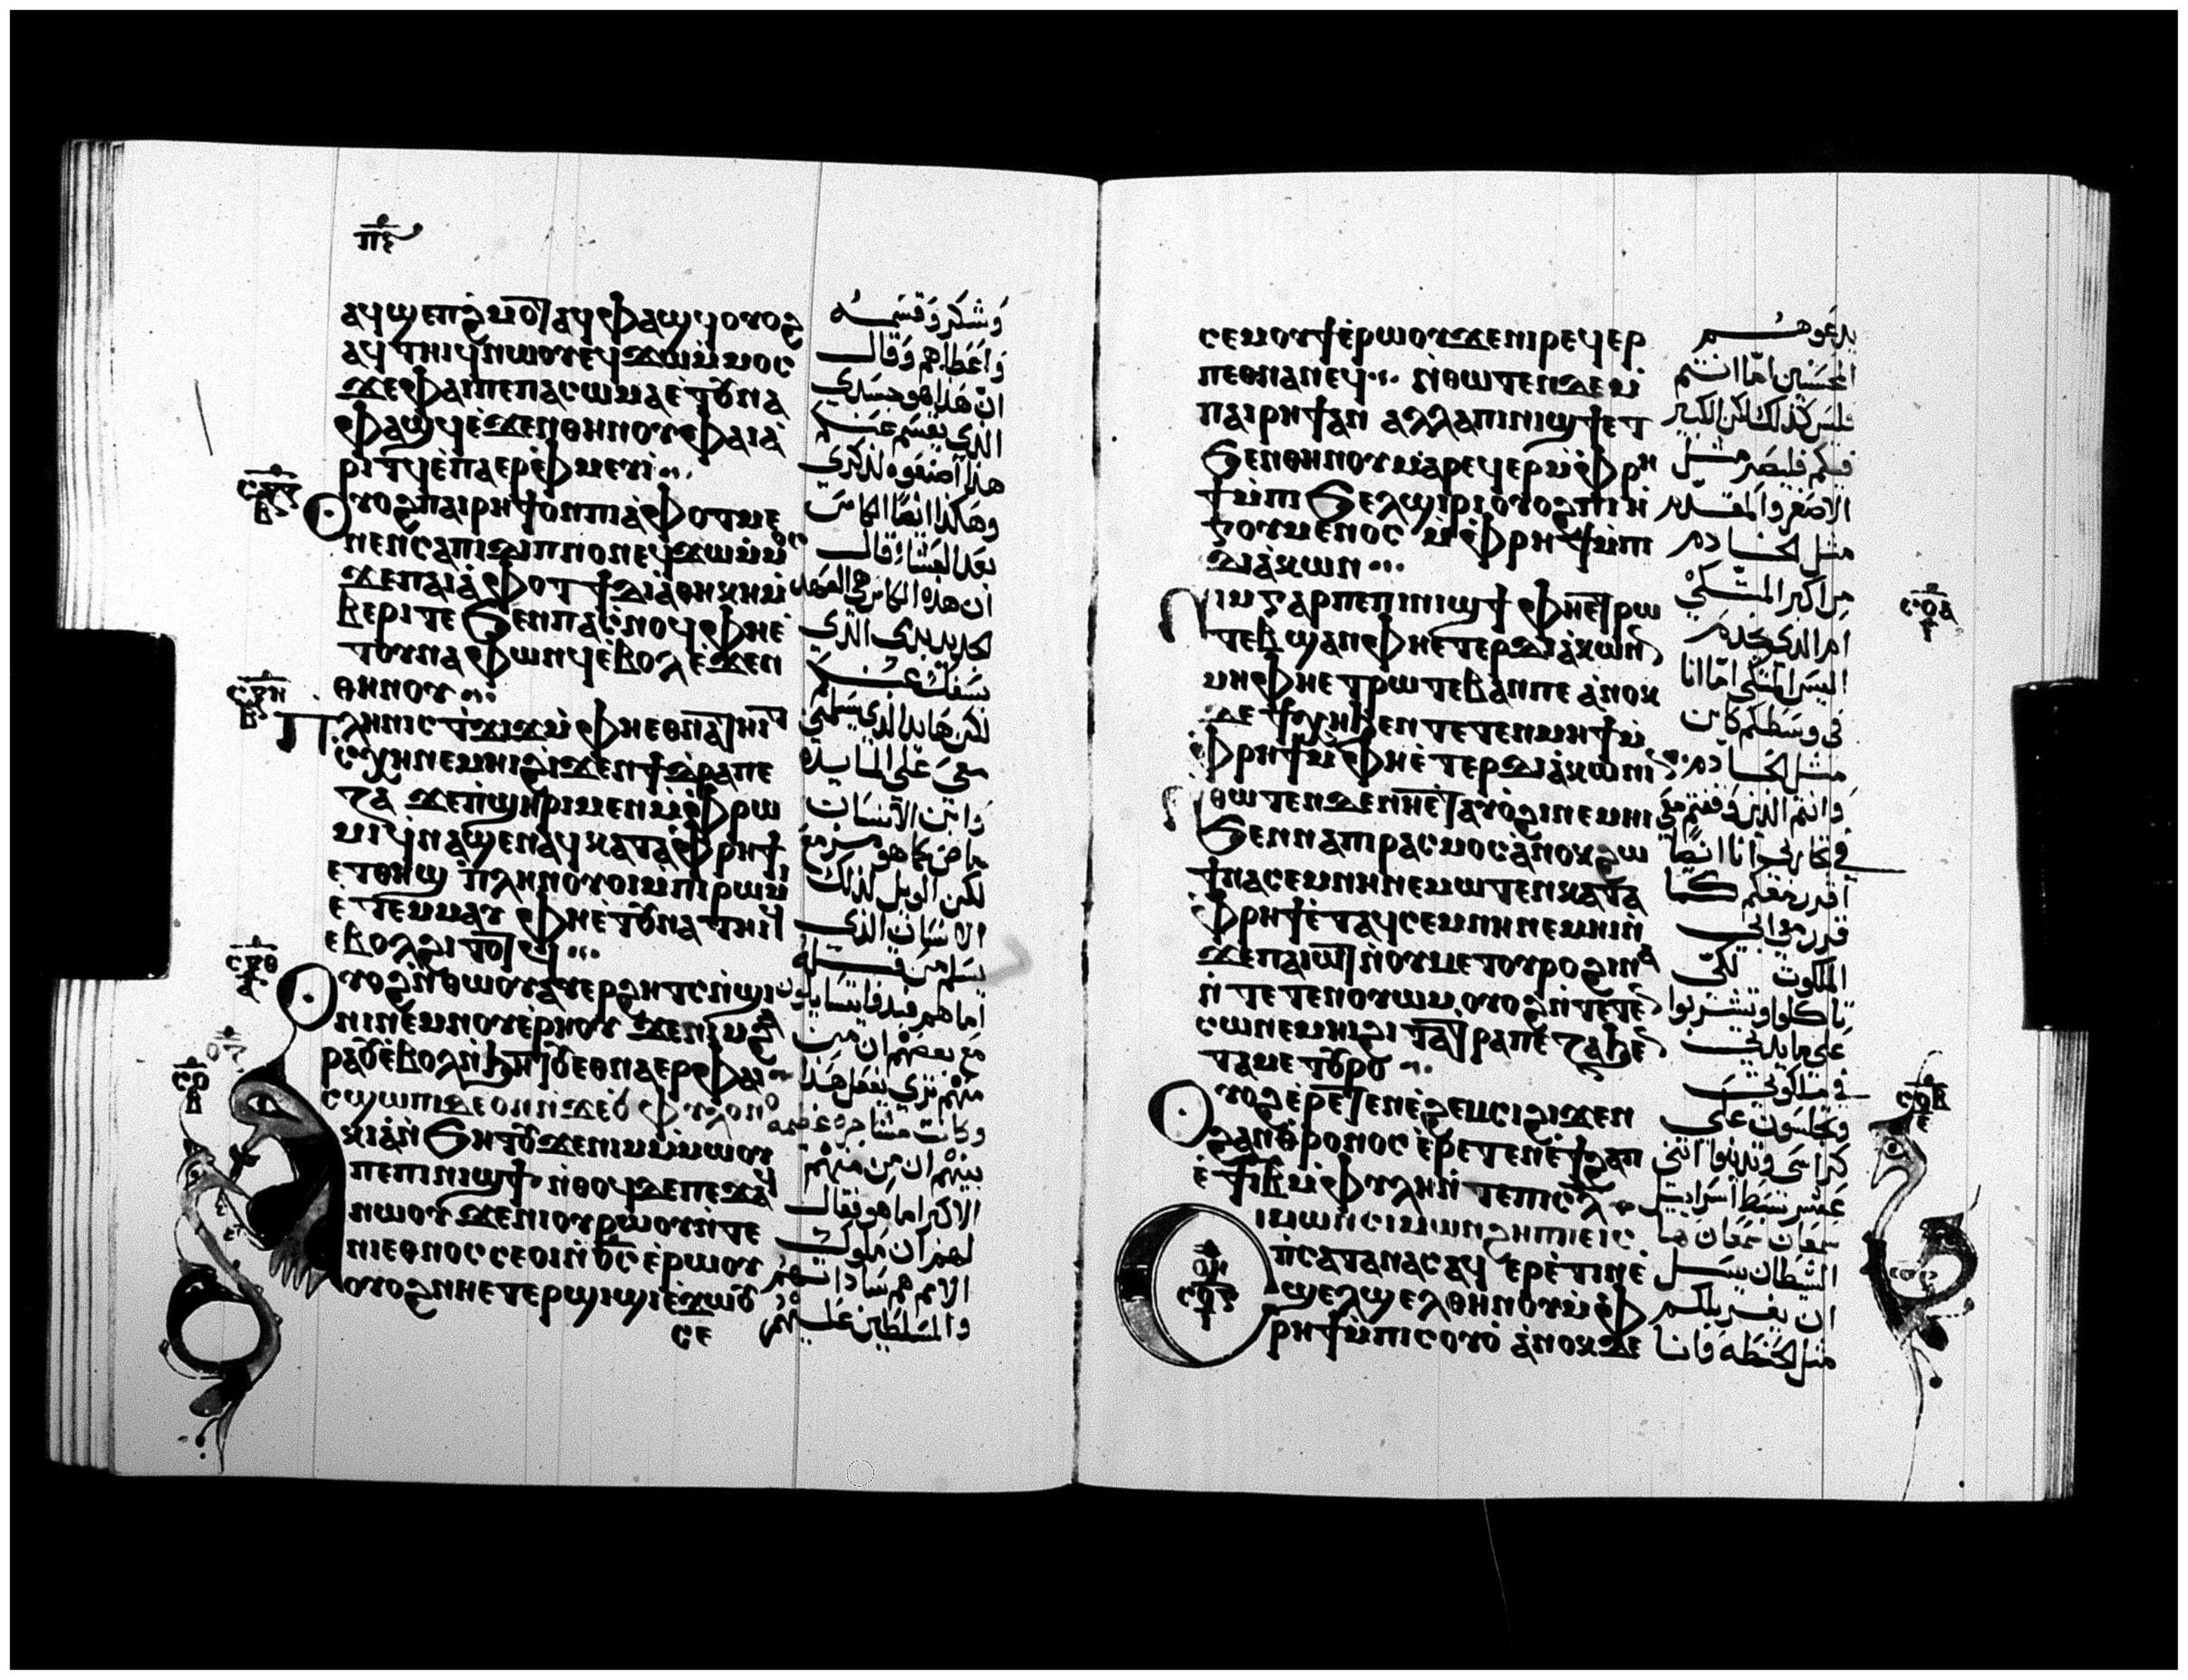 ⲡⲋ
ⲁϥϣⲉⲡϩⲙⲟⲧ ⲁϥⲫⲁϣϥ ⲟⲩⲟϩ
ⲁϥⲧⲏⲓϥ ⲛⲱⲟⲩ ⲉϥϫⲱ ⲙⲙⲟⲥ
ϫⲉ ⲫⲁⲓ ⲡⲉ ⲡⲁⲥⲱⲙⲁ ⲉⲧⲟⲩⲛⲁ
ⲫⲁϣϥ ⲉϫⲉⲛ ⲑⲏⲛⲟⲩ ⲫⲁⲓ ⲁ
ⲣⲓⲧϥ ⲉⲡⲁⲉⲣⲫⲙⲉⲩⲓ
ⲟⲩⲟϩ ⲡⲁⲓⲣⲏϯ ⲟⲛ ⲡⲓⲁⲫⲟⲧ ⲙⲉ
ⲛⲉⲛⲥⲁ ⲡⲓⲇⲓⲡⲛⲟⲛ ⲉϥϫⲱ ⲙⲙⲟⲥ
ϫⲉ ⲡⲁⲓⲁⲫⲟⲧ ϯⲇⲓⲁⲑⲏⲕⲏ ⲙ
ⲃⲉⲣⲓ ⲧⲉ ϧⲉⲛ ⲡⲁⲥⲛⲟϥ ⲫⲏ ⲉ
ⲧⲟⲩⲛⲁⲫⲟⲛϥ ⲉⲃⲟⲗ ⲉϫⲉⲛ
ⲑⲏⲛⲟⲩ
ⲡⲗⲏⲛ ⲓⲥ ⲧϫⲓϫ ⲙⲫⲏ ⲉⲑⲛⲁⲧⲏⲓⲧ
ⲥⲭⲏ ⲛⲉⲙⲏⲓ ϩⲓϫⲉⲛ ϯⲧⲣⲁⲡⲉ
ⲍⲁ ϫⲉ ⲡϣⲏⲣⲓ ⲙⲉⲛ ⲙⲫⲣⲱ
ⲙⲓ ϥⲛⲁϣⲉⲛⲁϥ ⲕⲁⲧⲁ ⲫⲣⲏϯ
ⲉⲧⲑⲏϣ ⲡⲗⲏⲛ ⲟⲩⲟⲓ ⲙⲡⲓⲣⲱⲙⲓ
ⲉⲧⲉⲙⲙⲁⲩ ⲫⲏ ⲉⲧⲟⲩⲛⲁⲧⲏⲓϥ
ⲉⲃⲟⲗ ϩⲓⲧⲟⲧϥ
ⲟⲩⲟϩ ⲛⲑⲱⲟⲩ ⲁⲩⲉⲣϩⲏⲧⲥ ⲛϣⲓ
ⲛⲓ ⲛⲉⲙ ⲛⲟⲩⲉⲣⲏⲟⲩ ϫⲉ ⲛⲓⲙ ϩⲁ
ⲣⲁ ⲟⲩ ⲉⲃⲟⲗ ⲛϧⲏⲧⲟⲩ ⲉⲑⲛⲁⲉⲣ ⲫⲁⲓ
ⲥϣⲱⲡⲓ ⲇⲉ ⲟⲛ ⲛϫⲉ ⲟⲩⲫⲩⲗⲟⲛⲓ
ⲕⲓⲁ ⲛϧⲏⲧⲟⲩ ϫⲉ ⲛⲓⲙ ⲙⲙⲱⲟⲩ
ⲡⲉ ⲡⲓⲛⲓϣϯ ⲛⲑⲟϥ ⲇⲉ ⲡⲉϫⲁϥ
ⲛⲱⲟⲩ ϫⲉ ⲛⲓⲟⲩⲣⲱⲟⲩ ⲛⲧⲉ
ⲛⲓⲉⲑⲛⲟⲥ ⲥⲉⲟⲓ ⲛϭⲥ ⲉⲣⲱⲟⲩ
ⲟⲩⲟϩ ⲛⲏ ⲉⲧⲉⲣϣⲓϣⲓ ⲉϫⲱⲟⲩ
ⲥⲉ
وشكر وقسمه
واعطاهم وقال
ان هذا هو جسدي
الذي يقسم عنكم
هذا اصنعوه لذكري
وهكذا ايضا الكاس
بعد العشا قال
ان هذه الكاس هي العهد
الجديد بدمي الذي
يسفك عنكم
لكن ها يد الذي يسلمني
معي على المايده
وابن الانسان
ماض كما هو مزمع
لكن الويل لذلك
الانسان الذي
يسلم من قبله
اما هم فبدوا يتسايلون
مع بعضهم ان من
منهم ترى يفعل هذا
وكانت مشاجره
بينهم ان من منهم
الاكبر اما هو فقال
لهم ان ملوك
الامم هم ساداتهم
والمسلطين عليهم
ⲥⲉⲙⲟⲩϯ ⲉⲣⲱⲟⲩ ϫⲉ ⲛⲓⲣⲉϥⲉⲣ
ⲡⲉⲑⲛⲁⲛⲉϥ ⲛⲑⲱⲧⲉⲛ ⲇⲉ ⲙ
ⲡⲁⲓⲣⲏϯ ⲁⲛ ⲁⲗⲗⲁ ⲡⲓⲛⲓϣϯ ⲉⲧ
ϧⲉⲛ ⲑⲏⲛⲟⲩ ⲙⲁⲣⲉϥⲉⲣ ⲙⲫⲣⲏ
ϯ ⲙⲡⲓϧⲉⲗϣⲓⲣⲓ ⲟⲩⲟϩ ⲡⲓⲏ
ⲅⲟⲩⲙⲉⲛⲟⲥ ⲙⲫⲣⲏϯ ⲙⲡⲓ
ⲇⲓⲁⲕⲱⲛ
ⲛⲓⲙ ⲅⲁⲣ ⲡⲉ ⲡⲓⲛⲓϣϯ ⲫⲏ ⲉⲧⲣⲱ
ⲧⲉⲃ ϣⲁⲛ ⲫⲏ ⲉⲧⲉⲣⲇⲓⲁⲕⲱⲛⲓⲛ
ⲙⲏ ⲫⲏ ⲉⲧⲣⲱⲧⲉⲃ ⲁⲛ ⲡⲉ ⲁⲛⲟⲕ
ⲇⲉ ϯⲭⲏ ϧⲉⲛ ⲧⲉⲧⲉⲛⲙⲏϯ ⲙ
ⲫⲣⲏϯ ⲙⲫⲏ ⲉⲧⲉⲣⲇⲓⲁⲕⲱⲛⲓⲛ
ⲛⲑⲱⲧⲉⲛ ⲇⲉ ⲛⲏ ⲉⲧⲁⲩⲟϩⲓ ⲛⲉⲙⲏⲓ
ϧⲉⲛ ⲛⲁⲡⲓⲣⲁⲥⲙⲟⲥ ⲁⲛⲟⲕ ϩⲱ
ϯⲛⲁⲥⲉⲙⲛⲏ ⲛⲉⲙⲱⲧⲉⲛ ⲕⲁⲧⲁ
ⲫⲣⲏϯ ⲉⲧⲁϥⲥⲉⲙⲛⲏ ⲛⲉⲙⲏⲓ ⲛ
ϫⲉ ⲡⲁⲓⲱⲧ ⲛⲟⲩⲙⲉⲧⲟⲩⲣⲟ ϩⲓⲛⲁ
ⲛⲧⲉⲧⲉⲛⲟⲩⲱⲙ ⲟⲩⲟϩ ⲛⲧⲉⲧⲉⲛ
ⲥⲱ ⲛⲉⲙⲏⲓ ϩⲓ ⲧⲁⲧⲣⲁⲡⲉⲍⲁ ϧⲉⲛ
ⲧⲁⲙⲉⲧⲟⲩⲣⲟ
ⲟⲩⲟϩ ⲉⲣⲉⲧⲉⲛⲉϩⲉⲙⲥⲓ ϩⲓϫⲉⲛ
ϩⲁⲛⲑⲣⲟⲛⲟⲥ ⲉⲣⲉⲧⲉⲛⲉϯϩⲁⲡ
ⲉϯⲓⲃ ⲙⲫⲩⲗⲏ ⲛⲧⲉ ⲡⲓⲥⲗ
ⲥⲓⲙⲱⲛ ⲥⲓⲙⲱⲛ ϩⲏⲡⲡⲉ ⲓⲥ
ⲡⲥⲁⲧⲁⲛⲁⲥ ⲁϥⲉⲣⲉⲧⲓⲛ ⲉ
ϣⲉⲗϣⲉⲗ ⲑⲏⲛⲟⲩ ⲙⲫ
ⲣⲏϯ ⲙⲡⲓⲥⲟⲩⲟ ⲁⲛⲟⲕ ⲇⲉ
يدعوهم
المحسنين اما انتم
فليس كذلك لكن الكبير
فيكم فليصر مثل
الاصغر والمقدم
مثل الخادم
من اكبر المتكي
ام الذي يخدم
اليس المتكي اما انا
في وسطكم كاين
مثل الخادم
وانتم الذين وقفتم معي
في تجاربي انا ايضا
اقرر معكم كما
قرر معي ابي
الملكوت لكي
تاكلوا وتشربوا
على مايدتي
في ملكوتي
وتجلسون على
كراسي وتدينوا اثني
عشر سبط اسراييل
سمعان سمعان ها
الشيطان سال
ان يغربلكم
مثل الحنطه فانا